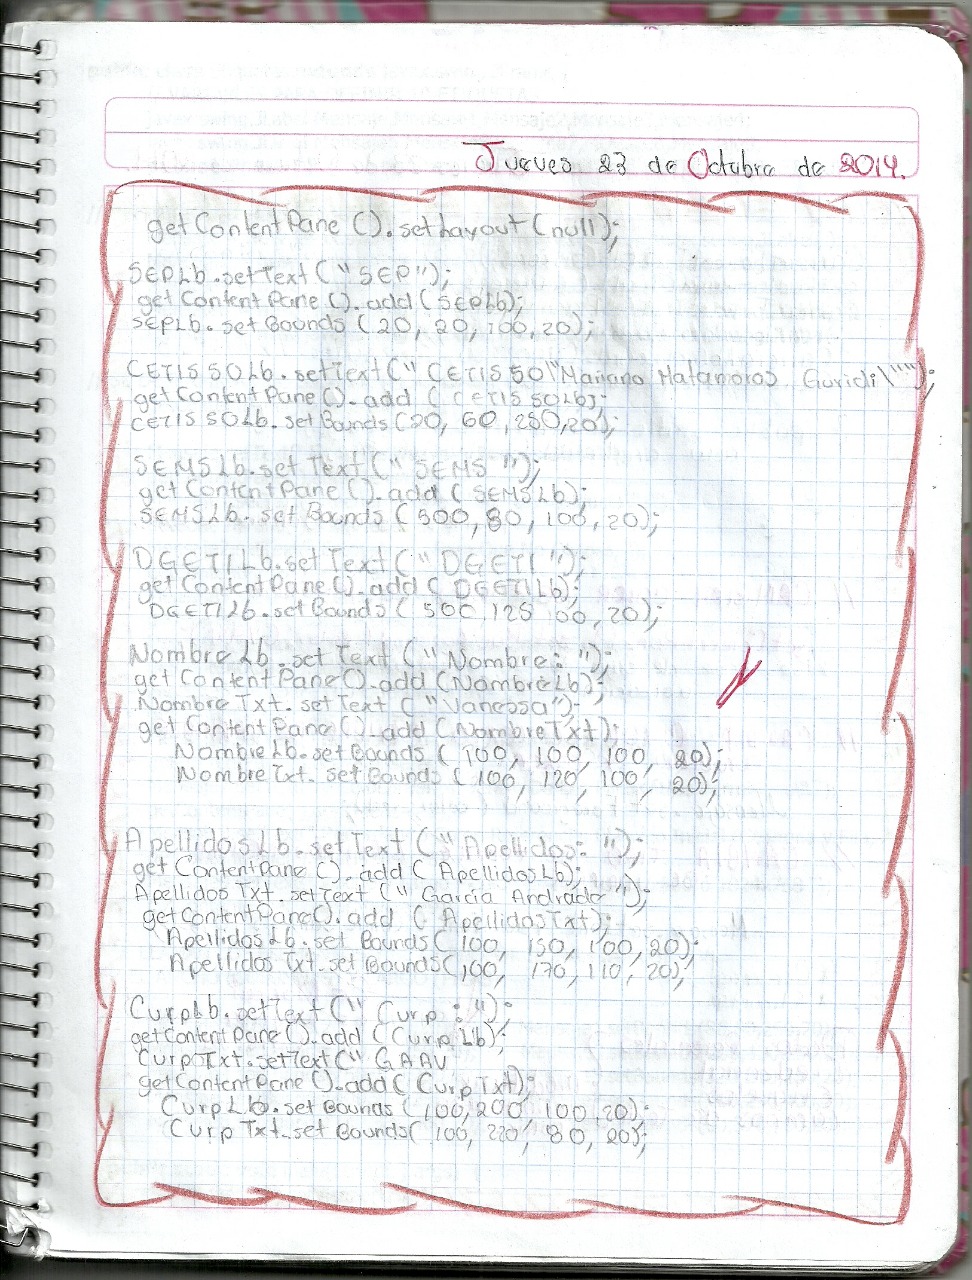 Jueves 23 de Octubre de 2014.
getContentPane().setLayout(null);
SEPLb.setText("SEP");
getContentPane().add(SEPLb);
SEPLb.setBounds(20, 20, 100, 20);
CETIS50Lb.setText("CETIS 50\"Mariano Matamoros Guridi\"");
getContentPane().add(CETIS50Lb);
CETIS50Lb.setBounds(20, 60, 250, 20);
SEMSLb.setText("SEMS");
getContentPane().add(SEMSLb);
SEMSLb.setBounds(500, 80, 100, 20);
DGETILb.setText("DGETI");
getContentPane().add(DGETILb);
DGETILb.setBounds(500, 125 20);
NombreLb.setText("Nombre: ");
getContentPane().add(NombreLb);
NombreTxt.setText("Vanessa");
getContentPane().add(NombreTxt);
NombreLb.setBounds(100, 100, 100, 20);
NombreTxt.setBounds(100, 120, 100, 20);
ApellidosLb.setText("Apellidos: ");
getContentPane().add(ApellidosLb);
ApellidosTxt.setText("Garcia Andrade");
getContentPane().add(ApellidosTxt);
ApellidosLb.setBounds(100, 150, 100, 20);
ApellidosTxt.setBounds(100, 170, 110, 20);
CurpLb.setText("Curp: ");
getContentPane().add(CurpLb);
CurpTxt.setText("GAAV
getContentPane().add(CurpTxt);
CurpLb.setBounds(100, 200 100, 20);
CurpTxt.setBounds(100, 220, 80, 20);